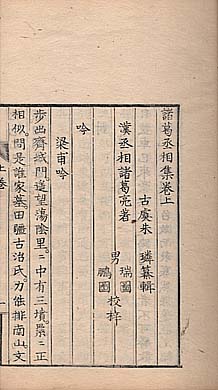 諸葛丞相集卷上
古虞朱 璘纂輯
漢丞相諸葛亮著
男 瑞圖
鵬圖 校梓
吟
梁甫吟
步出齊城門遥望蕩陰里〻中有三墳纍〻正
相似問是誰家墓田疆古冶氏力能排南山文